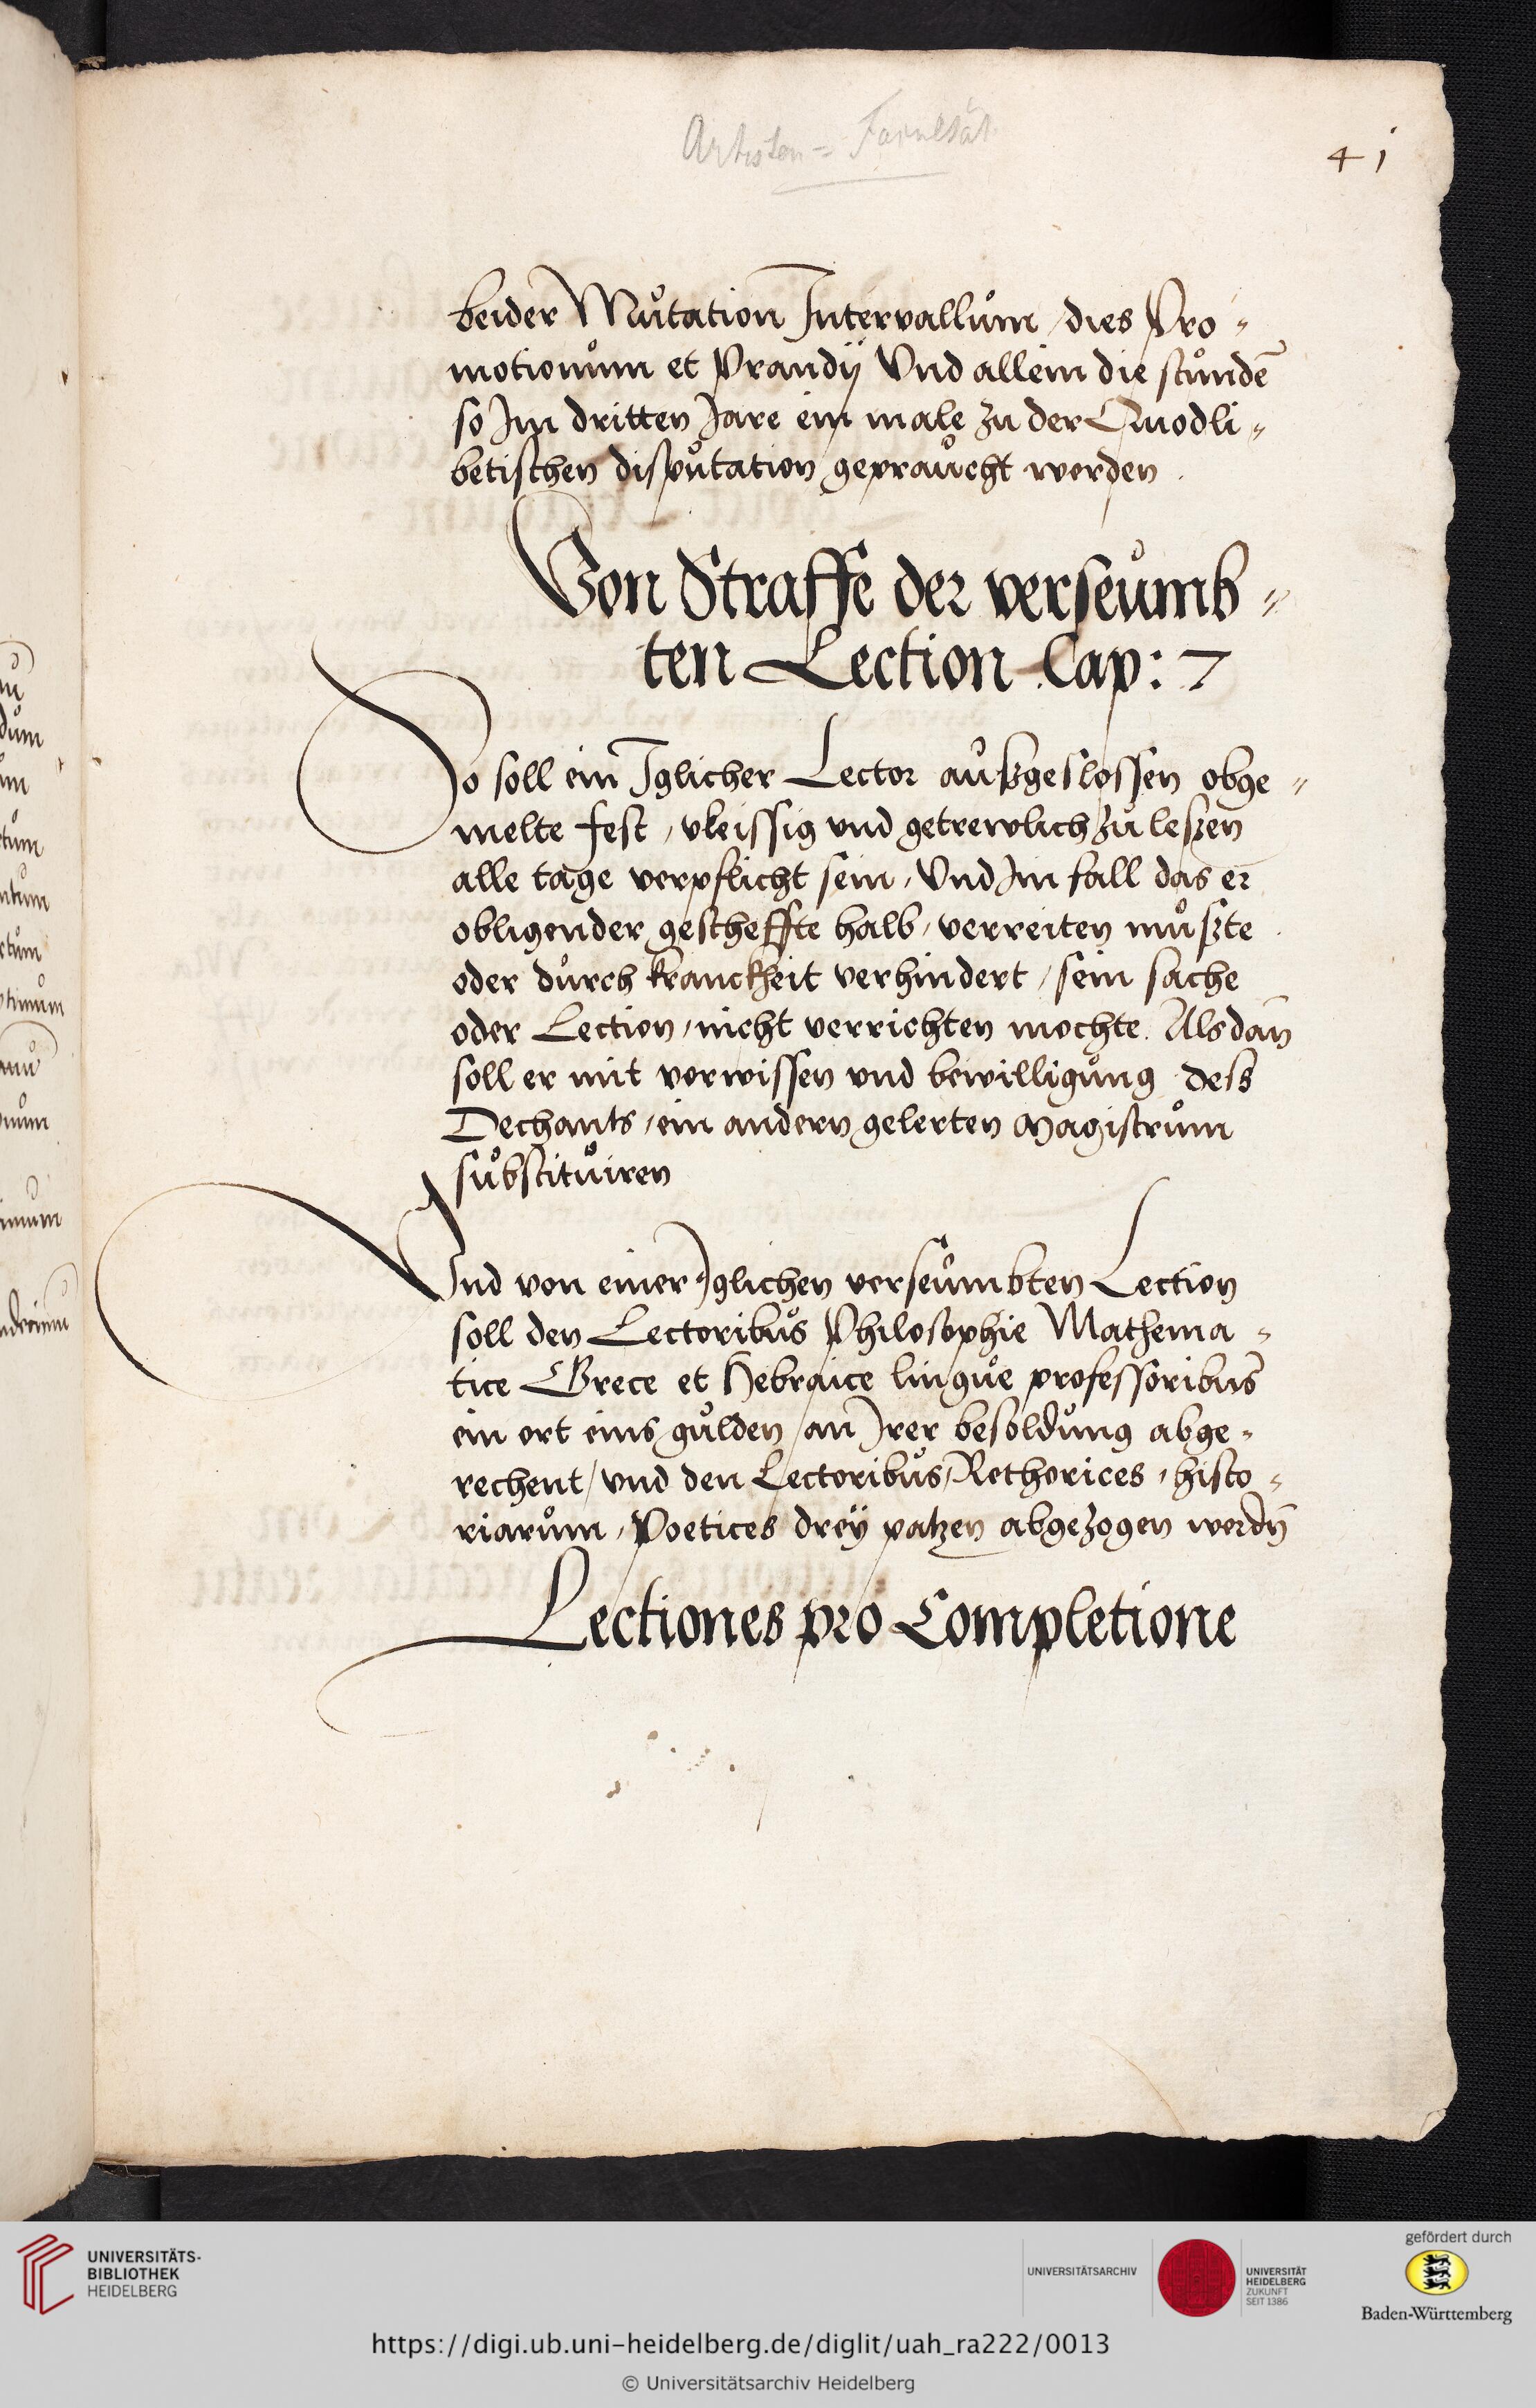 Artisten=Facultät
41
beider Mutation Intervallum / dies Pro=
motionum et Prandij Vnd allein die stunde̅
so Im dritten Jare ein male zu der Quodli=
betischen disputation gepraucht werden.
Von Straffe der verseumb=
ten Lection Cap: 7
So soll ein Iglicher Lector außgeslossen obge=
melte fest, vleissig vnd getrewlich zu leßen
alle tage verpflicht sein, Vnd Im fall das er
obligender gescheffte halb, verreiten mußte
oder durch kranckheit verhindert, sein sache
oder Lection, nicht verrichten mochte. Alsdan̅
soll er mit vorwissen vnd bewilligung deß
Dechants, ein andern gelerten Magistrum
substituiren
Vnd von einer Iglichen verseumbten Lection
soll den Lectoribus Philosophie Mathema=
tice Grece et Hebraice lingue professoribus
ein ort eins gulden / an Irer besoldung abge=
rechent / vnd den Lectoribus, Rethorices, histo=
riarum, Poetices drey patzen abgezogen werdn̅
Lectiones pro Completione
UNIVERSITÄTS-
BIBLIOTHEK
HEIDELBERG
UNIVERSITÄTSARCHIV
UNIVERSITÄT
HEIDELBERG
ZUKUNFT
SEIT 1386
gefördert durch
Baden-Württemberg
https://digi.ub.uni-heidelberg.de/diglit/uah_ra222/0013
© Universitätsarchiv Heidelberg